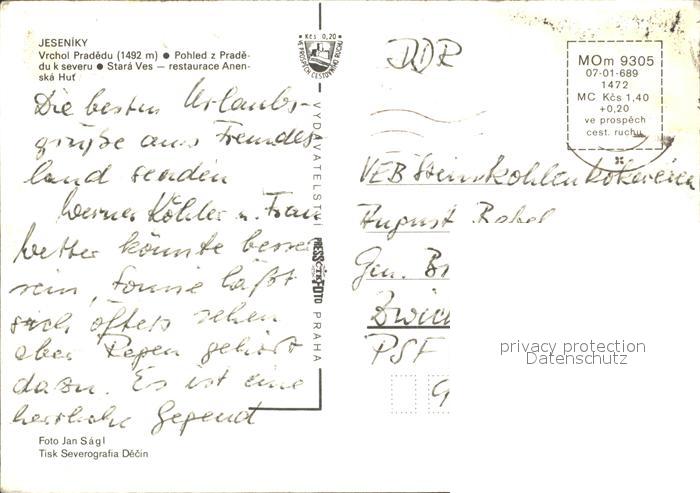 JESENÍKY
Vrchol Pradědu (1492 m) ● Pohled z Pradě-
du k severu ● Stará Ves — restaurace Anen-
ská Huť
Die besten Urlaubs-
grüße aus Freundes
land senden
Werner Köhler u. Frau
Wetter könnte besser
sein, Sonne läßt
sich öfters sehen
aber Regen gehört
dazu. Es ist eine
herrliche Gegend
Foto Jan Ságl
Tisk Severografia Děčín
Kčs 0,20
VE PROSPĚCH CESTOVNÍHO RUCHU
VYDAVATELSTVÍ
PRESSFOTO
PRAHA
DDR
MOm 9305
07-01-689
1472
MC Kčs 1,40
+0,20
ve prospěch
cest. ruchu
VEB Steinkohlenkokereien
August
Gen.
PSF
9
privacy protection
Datenschutz